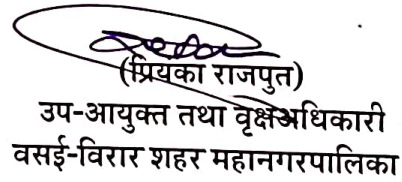 (प्रियंका राजपुत)
उप-आयुक्त तथा वृक्षअधिकारी
वसई-विरार शहर महानगरपालिका